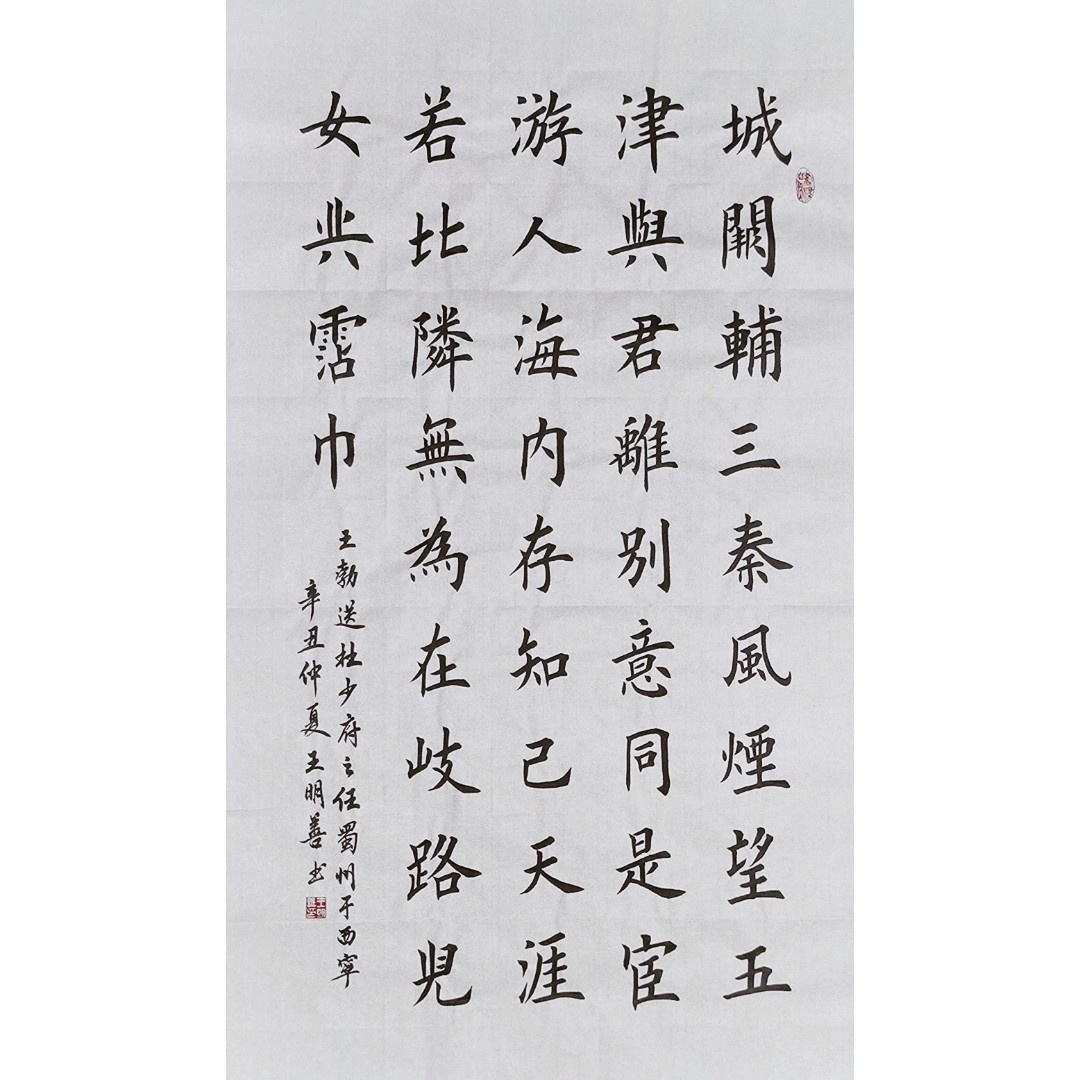 城闕輔三秦風煙望五
津與君離別意同是宦
游人海內存知己天涯
若比隣無為在岐路兒
女共霑巾
王勃送杜少府之任蜀州于西寧
辛丑仲夏王明善书